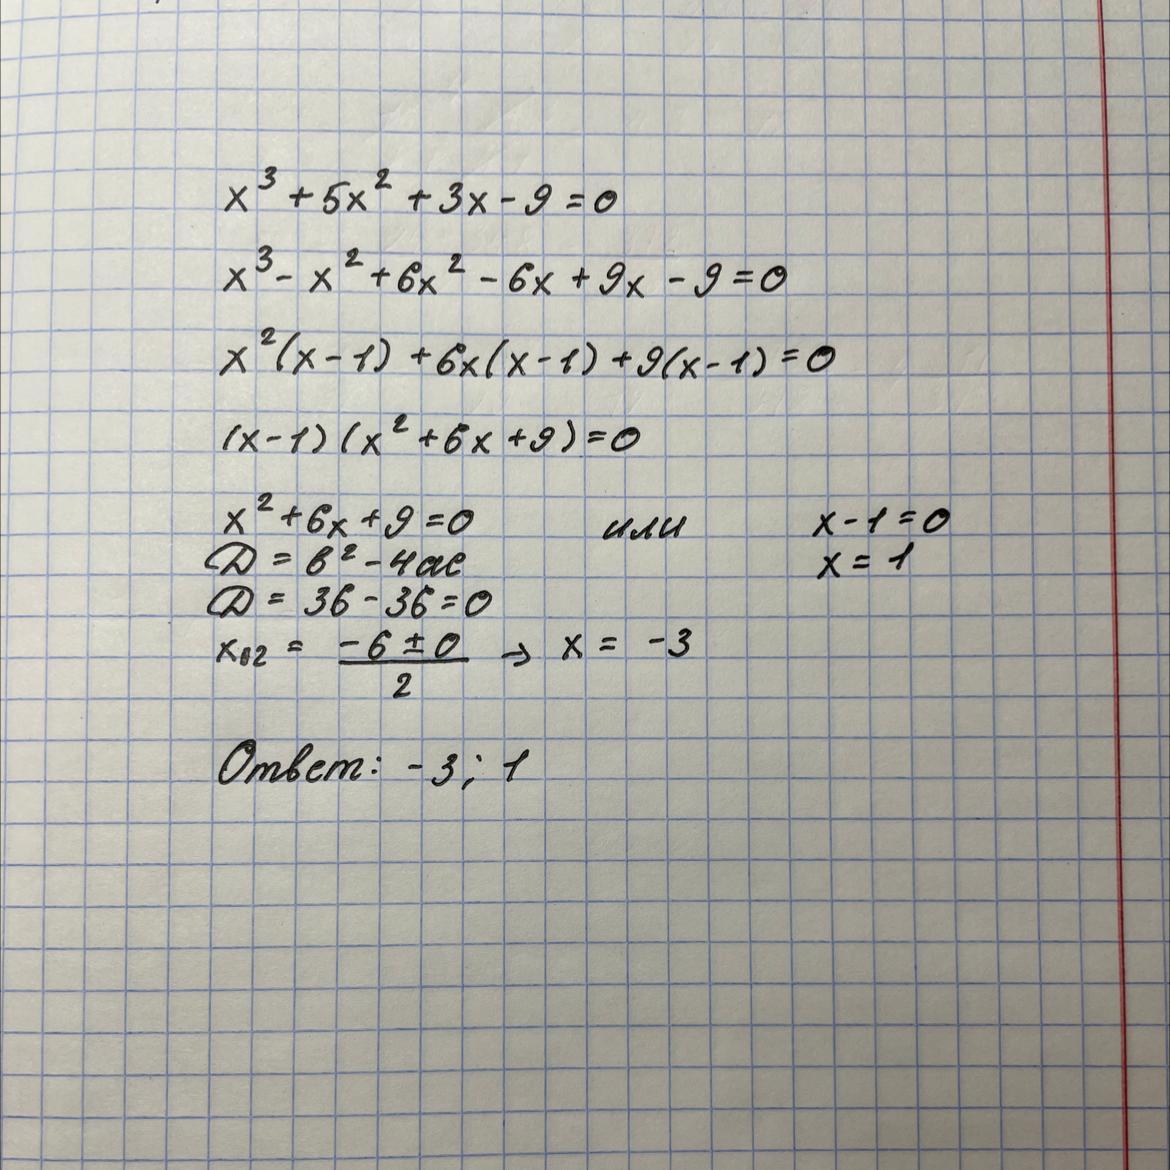 x³ + 5x² + 3x - 9 = 0
x³ - x² + 6x² - 6x + 9x - 9 = 0
x²(x - 1) + 6x(x - 1) + 9(x - 1) = 0
(x - 1)(x² + 6x + 9) = 0
x² + 6x + 9 = 0 или x - 1 = 0
D = b² - 4ac x = 1
D = 36 - 36 = 0
x₁,₂ = (-6 ± 0)/2 → x = -3
Ответ: -3; 1